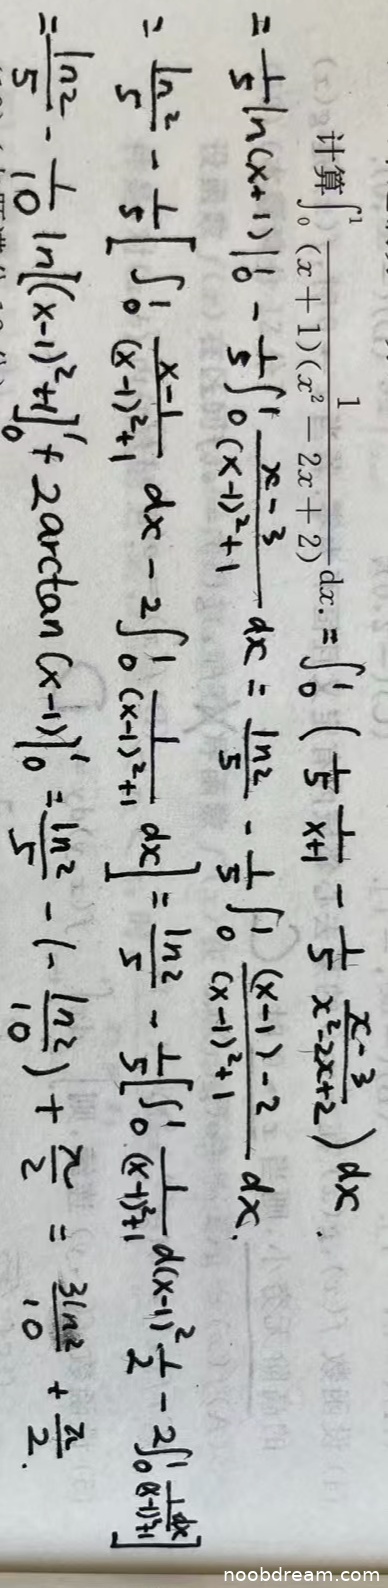 计算∫₀¹ 1/((x+1)(x²-2x+2)) dx. = ∫₀¹ (1/5 1/(x+1) - 1/5 (x-3)/(x²-2x+2)) dx.
= 1/5 ln(x+1)|₀¹ - 1/5 ∫₀¹ (x-3)/((x-1)²+1) dx = ln2/5 - 1/5 ∫₀¹ ((x-1)-2)/((x-1)²+1) dx.
= ln2/5 - 1/5 [∫₀¹ (x-1)/((x-1)²+1) dx - 2∫₀¹ 1/((x-1)²+1) dx] = ln2/5 - 1/5 [∫₀¹ 1/((x-1)²+1) d(x-1)² 1/2 - 2∫₀¹ 1/((x-1)²+1) dx]
= ln2/5 - 1/10 ln[(x-1)²+1]|₀¹ + 2arctan(x-1)|₀¹ = ln2/5 - (-ln2/10) + π/2 = 3ln2/10 + π/2.
noobdream.com